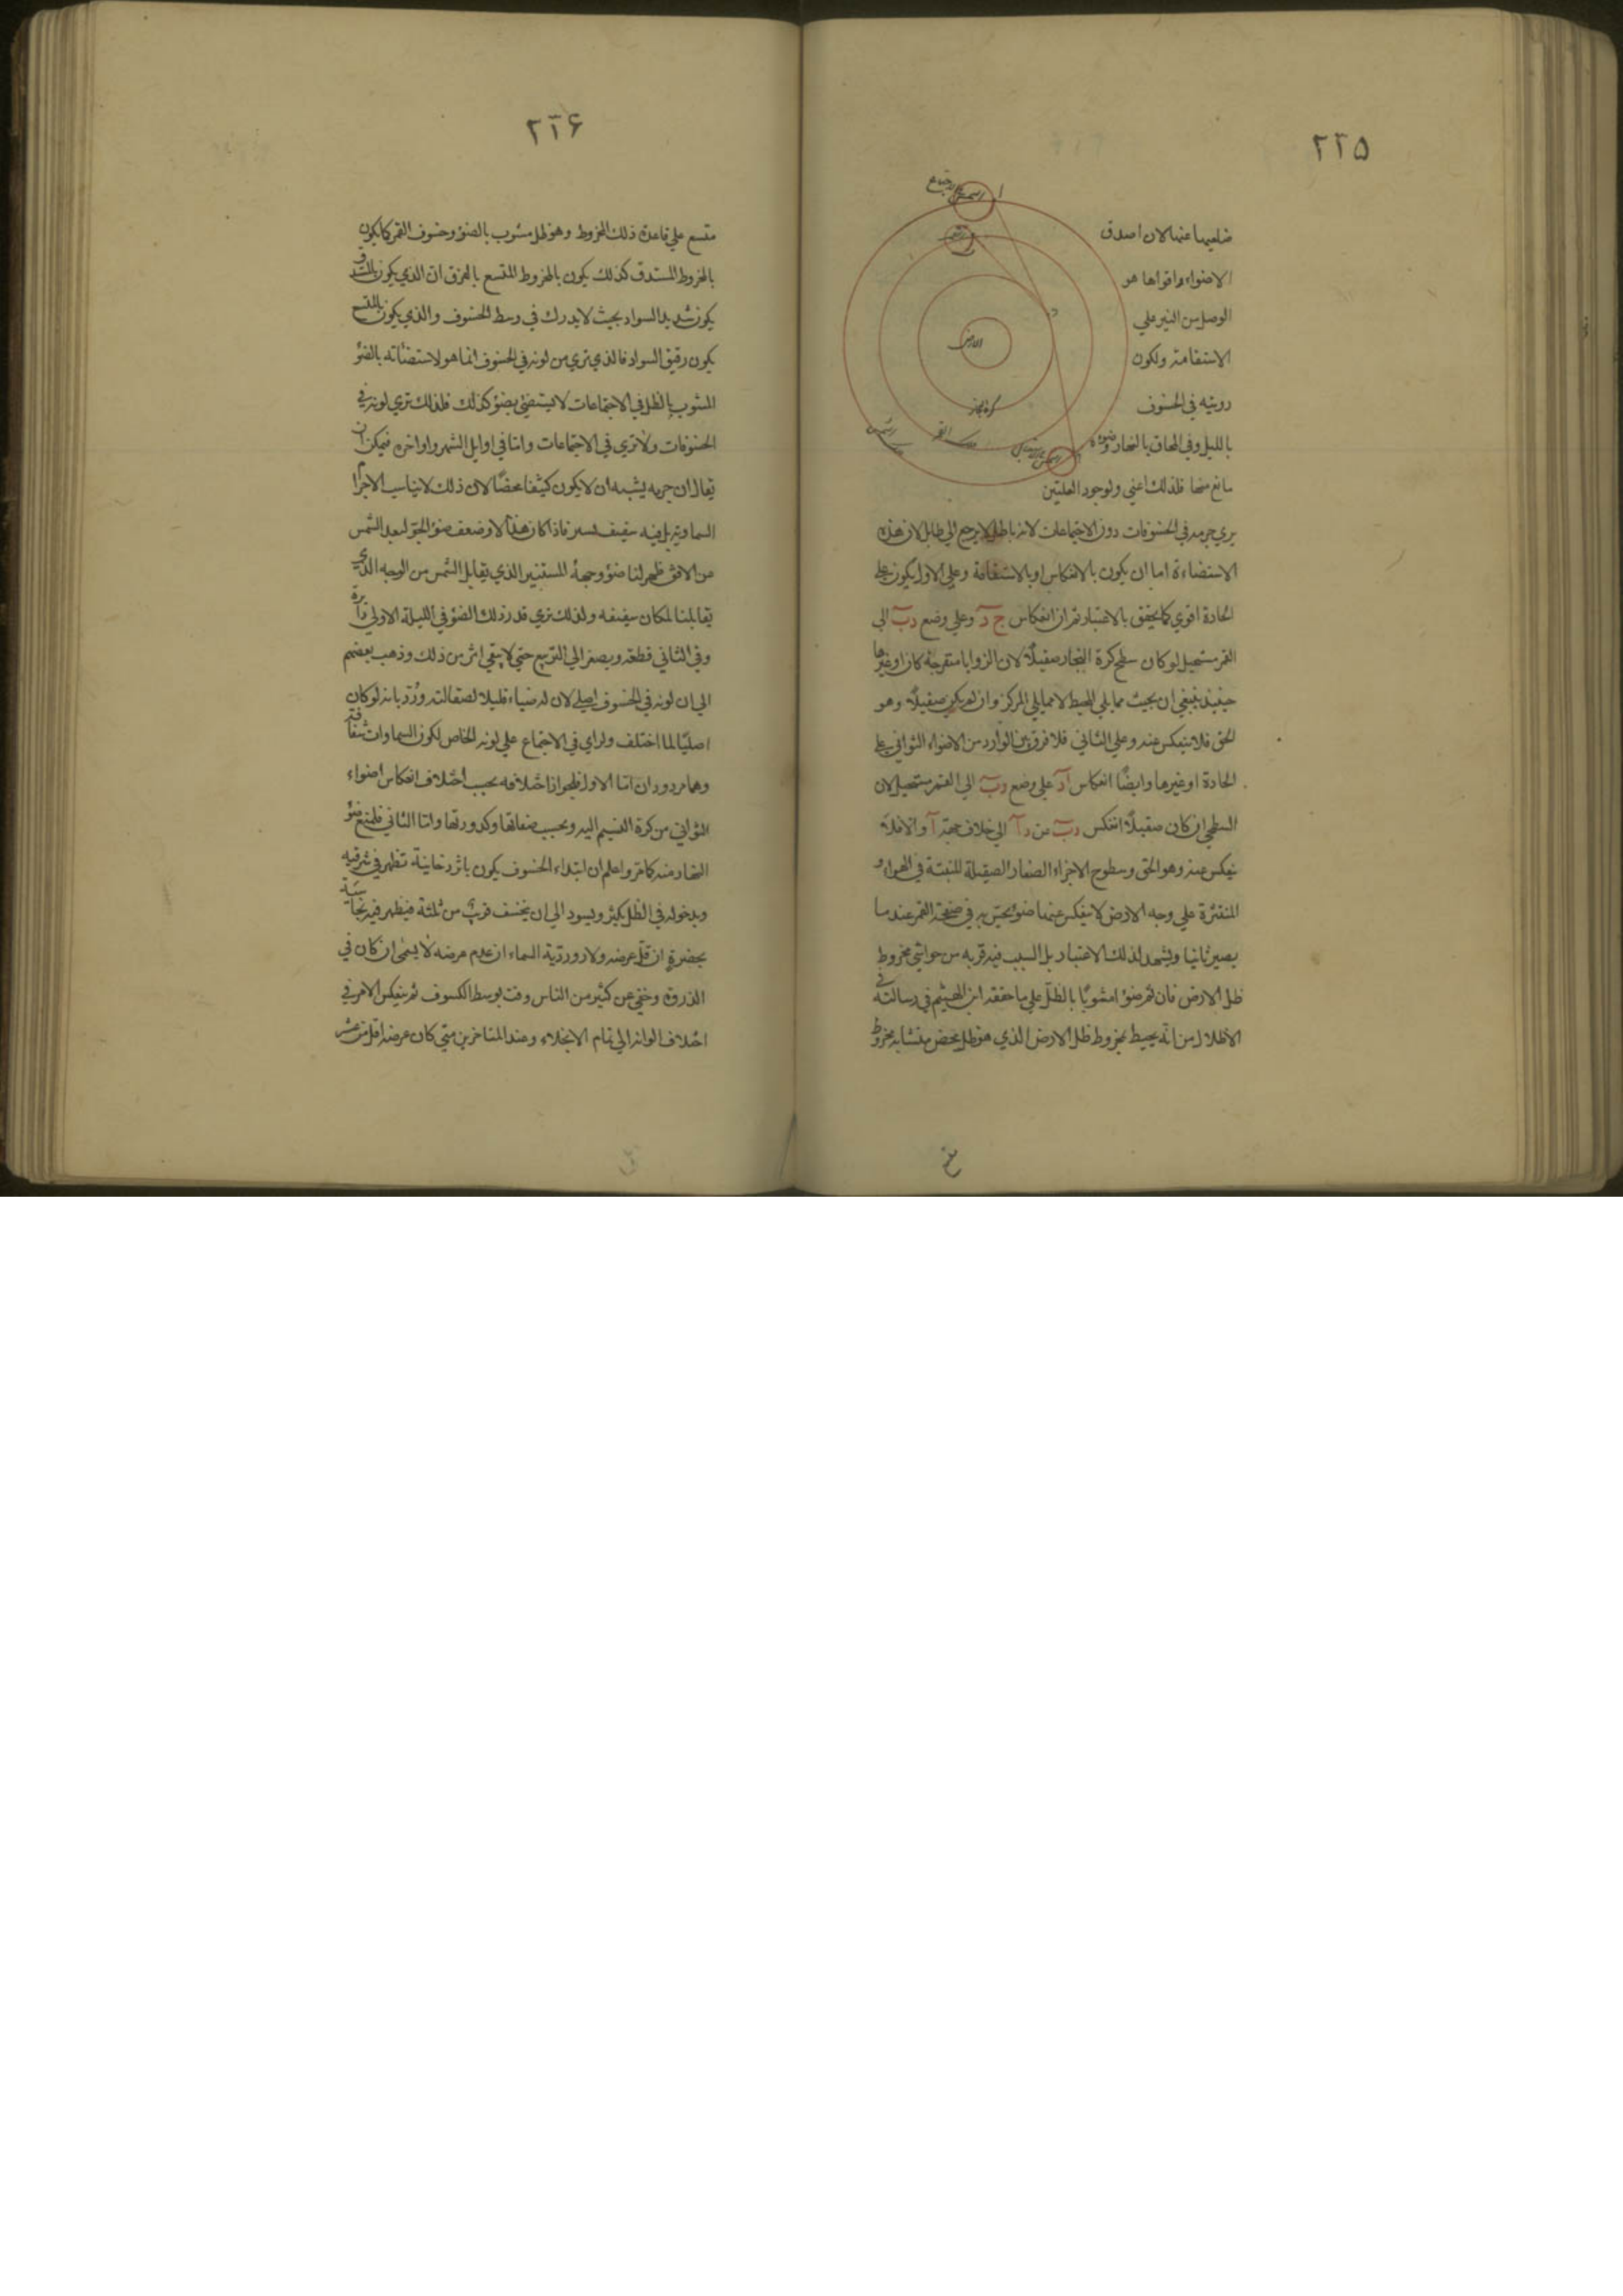 ٢٢۵
ضلعيها عنها لان اصدق
الاضواء واقواها هو
الوصل من النير علي
الاستقامة ولكون
رويته في الخسوف
بالليل وفي المحاق بالنهار وضوءه
مانع منها فلذلك اعني ولوجود العلتين
يري جرمه في الخسوفات دون الاجتماعات لانه باطل لا يرجع الي طايل لان هذه
الاستضاءة اما ان يكون بالانعكاس او بالاستقامة وعلي الاول يكون علي
الحادة اقوي كما يحقق بالاعتبار ثم ان انعكاس ج د وعلي وضع د ب الي
القمر مستحيل لو كان سطح كرة البخار صقيلا لان الزوايا متفرجة كان او غيرها
حينئذ ينبغي ان يحيث مما يلي المحيط لا مما يلي المركز وان لم يكن صقيلا وهو
الحق فلا ينعكس عنه وعلي الثاني فلا فرق بين الوارد من الاضواء الثواني علي
الحادة او غيرها وايضا انعكاس ا د علي وضع د ب الي القمر مستحيل لان
السطح ان كان صقيلا انعكس د ب من د ا الي خلاف جهة ا والا فلا
ينعكس عنه وهو الحق وسطوح الاجزاء الصغار الصقيلة المنبثة في الهواء و
المنتثرة علي وجه الارض لا ينعكس عنها ضوء يحس به في صفحة القمر عندما
يصير ثانيا ويشهد لذلك الاعتبار بل السبب فيه قربه من حواشي مخروط
ظل الارض فان ثم ضوءا مشوبا بالظل علي ما حققه ابن الهيثم في رسالته في
الاظلال من انه يحيط بمخروط ظل الارض الذي هو ظل محض متشابه مخروط
ا
الشمس
القمر
د
الارض
كرة البخار
٢٢۶
متسع علي قاعدة ذلك المخروط وهو ظل مشوب بالضوء وخسوف القمر كما يكون
بالمخروط المستدق كذلك يكون بالمخروط المتسع بالفرق ان الذي يكون بالمستدق
يكون شديد السواد بحيث لا يدرك في وسط الخسوف والذي يكون بالمتسع
يكون رقيق السواد فالذي تري من لونه في الخسوف انما هو لاستضاته بالضوء
المشوب بالظل في الاجتماعات لا يستضئ بضوء كذلك فلذلك تري لونه في
الخسوفات ولا تري في الاجتماعات واما في اوايل الشهر واواخره فيمكن ان
يقال ان جرمه يشبه ان لا يكون كثيفا محضا لان ذلك لا يناسب الاجرام
السماوية بل فيه سفيف يسير فاذا كان هذا الاوضعف ضوء الجو لبعد الشمس
من الافق ظهر لنا ضوء وجهه المستنير الذي يقابل الشمس من الوجه الذي
يقابلنا لمكان سفيفه ولذلك تري قدر ذلك الضوء في الليلة الاولي دائرة
وفي الثاني قطعة ويصغر الي التربيع حتي لا يبقي اثر من ذلك وذهب بعضهم
الي ان لونه في الخسوف اصلي لان له ضياء قليلا لصقالته ورد بانه لو كان
اصليا لما اختلف ولراي في الاجتماع علي لونه الخاص لكون السماوات شفافة
وهما مردودان اما الاول فلجواز اختلافه بحسب اختلاف انعكاس اضواء
الثواني من كرة النسيم اليه وبحسب صفائها وكدورتها واما الثاني فلمنع ضوء
النهار منه كما مر واعلم ان ابتداء الخسوف يكون باثر دخانية تظهر في شرقيه
وبدخوله في الظل يكثر ويسود الي ان يخسف قريب من ثلثه فيظهر فيه نحاسية
بحضرة ان قل عرضه ولازوردية السماء ان عدم عرضه لا يسمي ان كان في
الذروة وخفي عن كثير من الناس وقت توسط الكسوف ثم ينعكس الامر في
اختلاف الوانه الي تمام الانجلاء وعند المتاخرين متي كان عرضه اقل من عشر